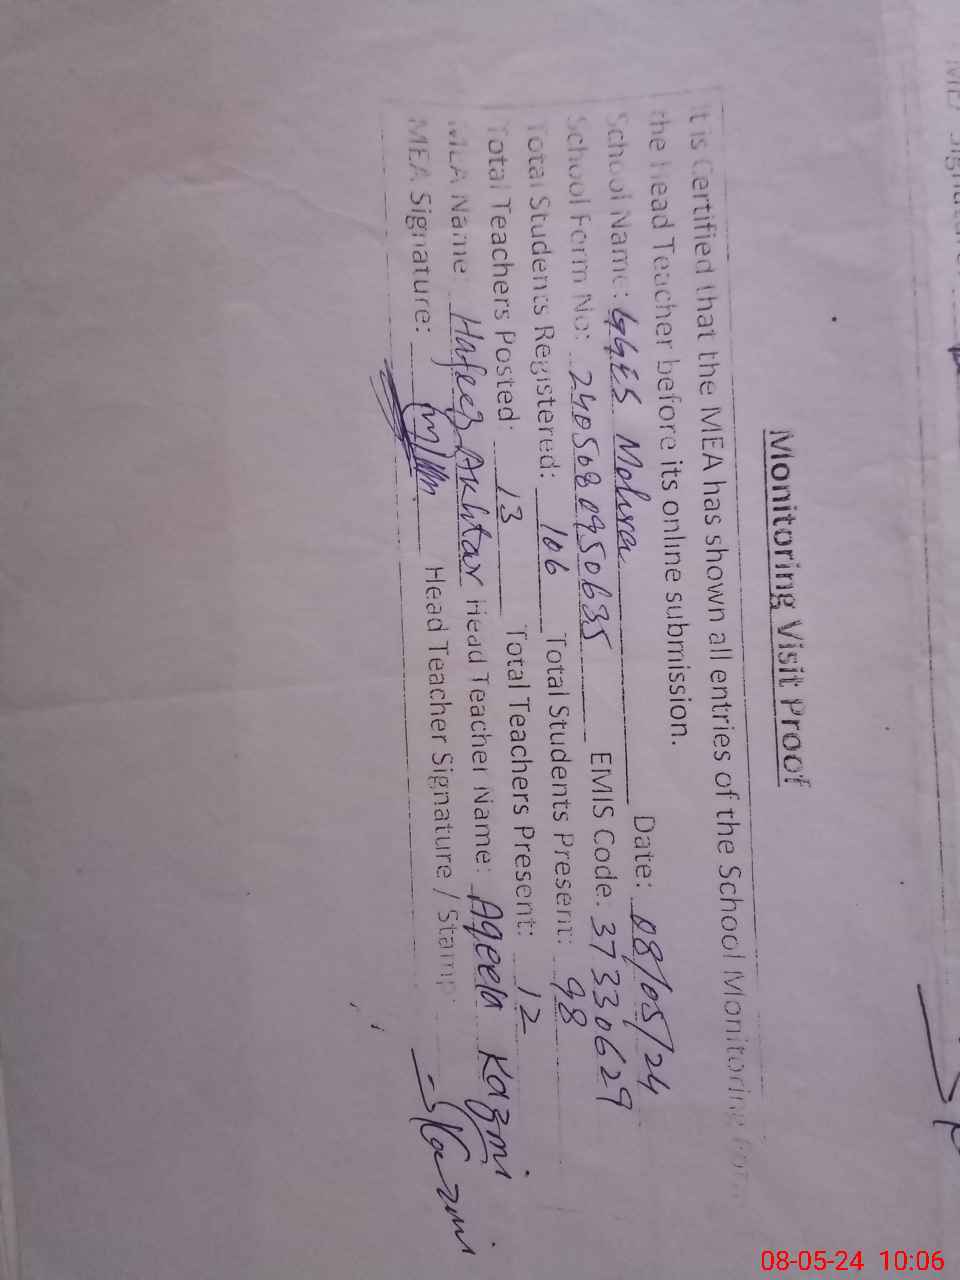 Monitoring Visit Proof
It is Certified that the MEA has shown all entries of the School Monitoring Form
the Head Teacher before its online submission.
School Name: GGES Mohra Date: 08/05/24
School Form No: 2405080950635 EMIS Code: 37330629
Total Students Registered: 106 Total Students Present: 98
Total Teachers Posted: 13 Total Teachers Present: 12
MEA Name: Hafeez Akhtar Head Teacher Name: Aqeela Kazmi
MEA Signature: Head Teacher Signature / Stamp: Kazmi
08-05-24 10:06